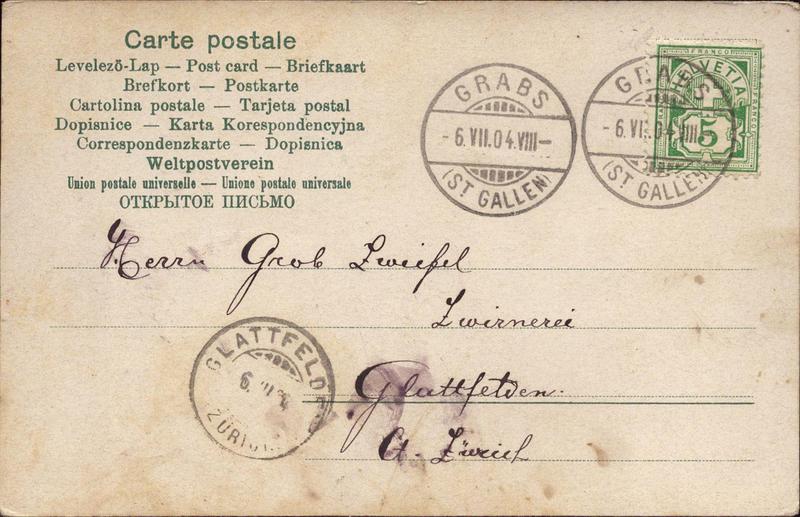 Carte postale
Levelező-Lap — Post card — Briefkaart
Brefkort — Postkarte
Cartolina postale — Tarjeta postal
Dopisnice — Karta Korespondencyjna
Correspondenzkarte — Dopisnica
Weltpostverein
Union postale universelle — Unione postale universale
ОТКРЫТОЕ ПИСЬМО
GRABS
-6.VII.04.VIII-
(ST GALLEN)
GRABS
-6.VII.04.VIII-
(ST GALLEN)
FRANCO
HELVETIA
5
Herrn Grob Zweifel
Zwirnerei
Glattfelden.
Ct. Zürich
GLATTFELDEN
6.VII.